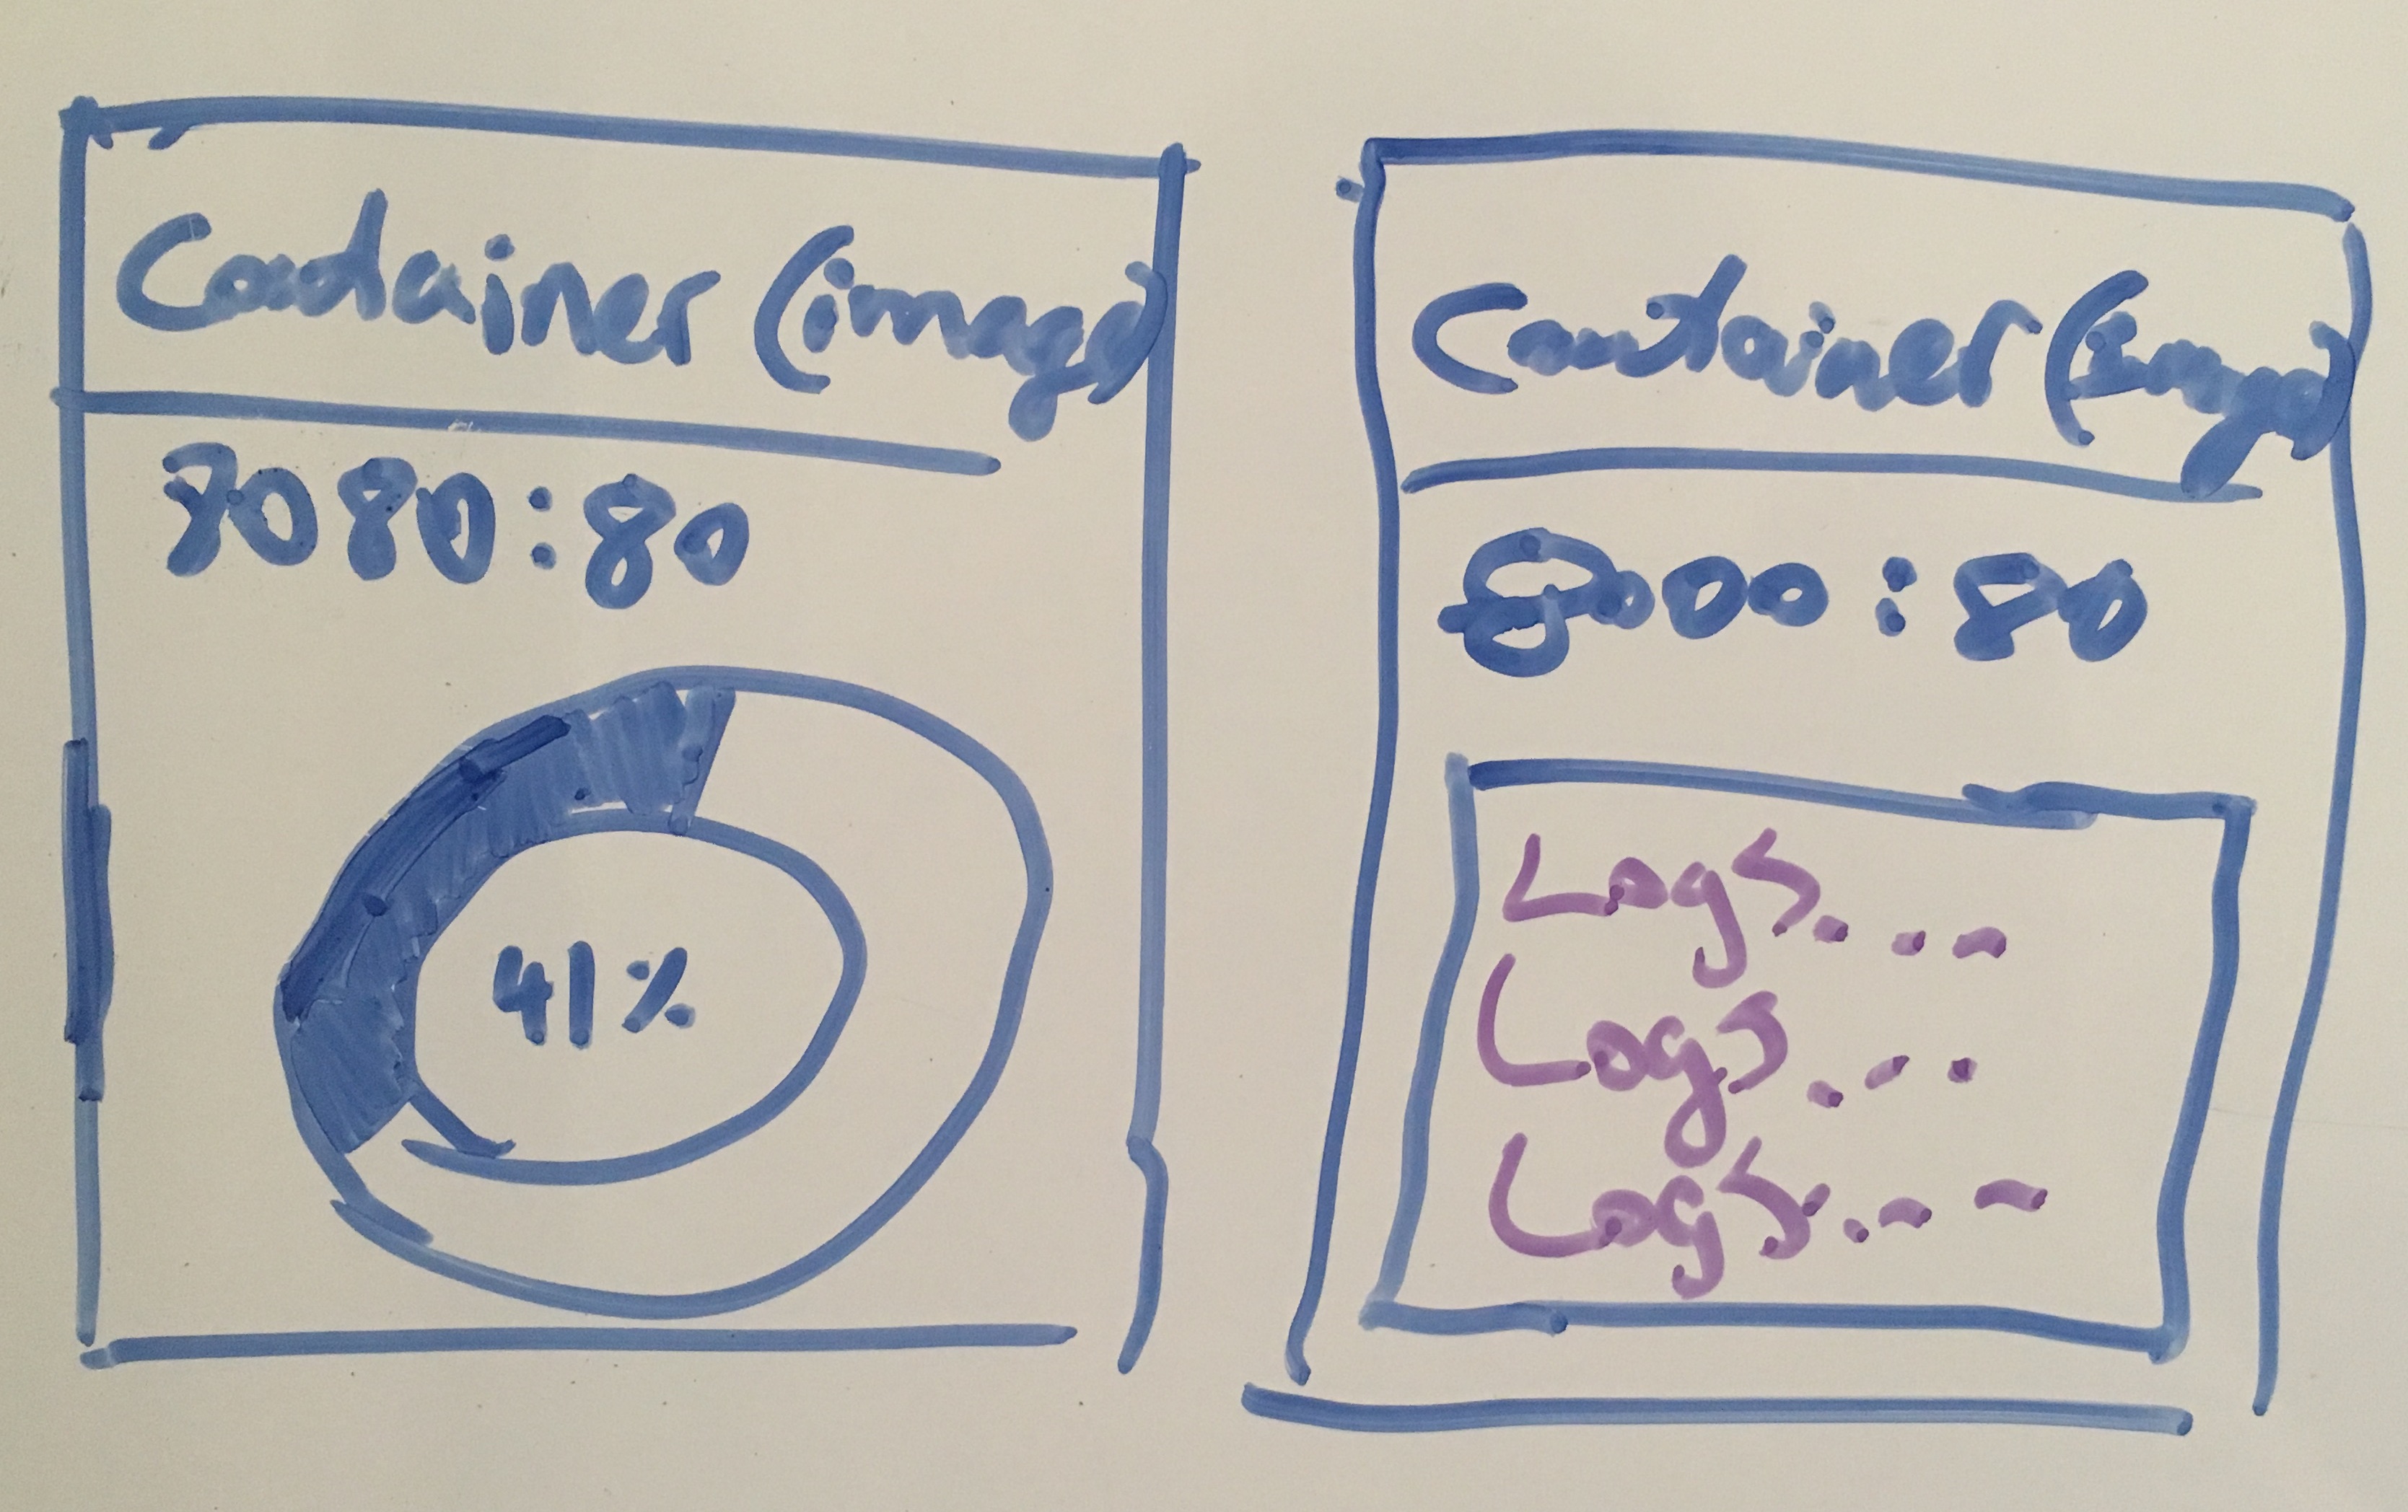 Container (image)
8080:80
41%
Container (image)
8000:80
Logs....
Logs....
Logs....